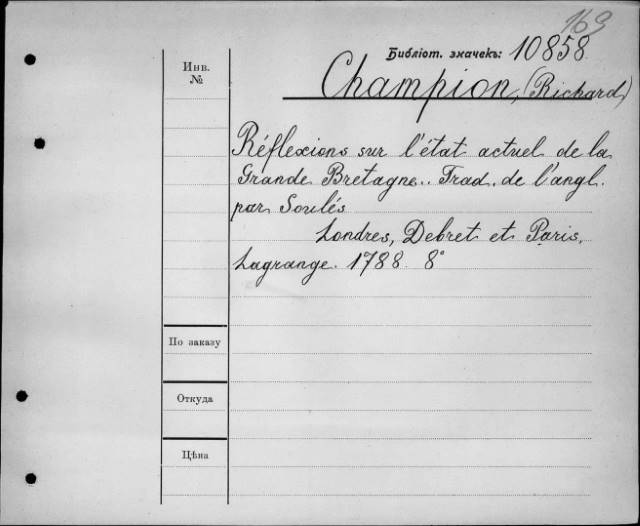 169
Библіот. значекъ: 10858
Инв.
№
Champion, (Richard)
Réflexions sur l'état actuel de la
Grande Bretagne.. Trad. de l'angl.
par Soulés
Londres, Debret et Paris,
Lagrange. 1788. 8°
По заказу
Откуда
Цѣна